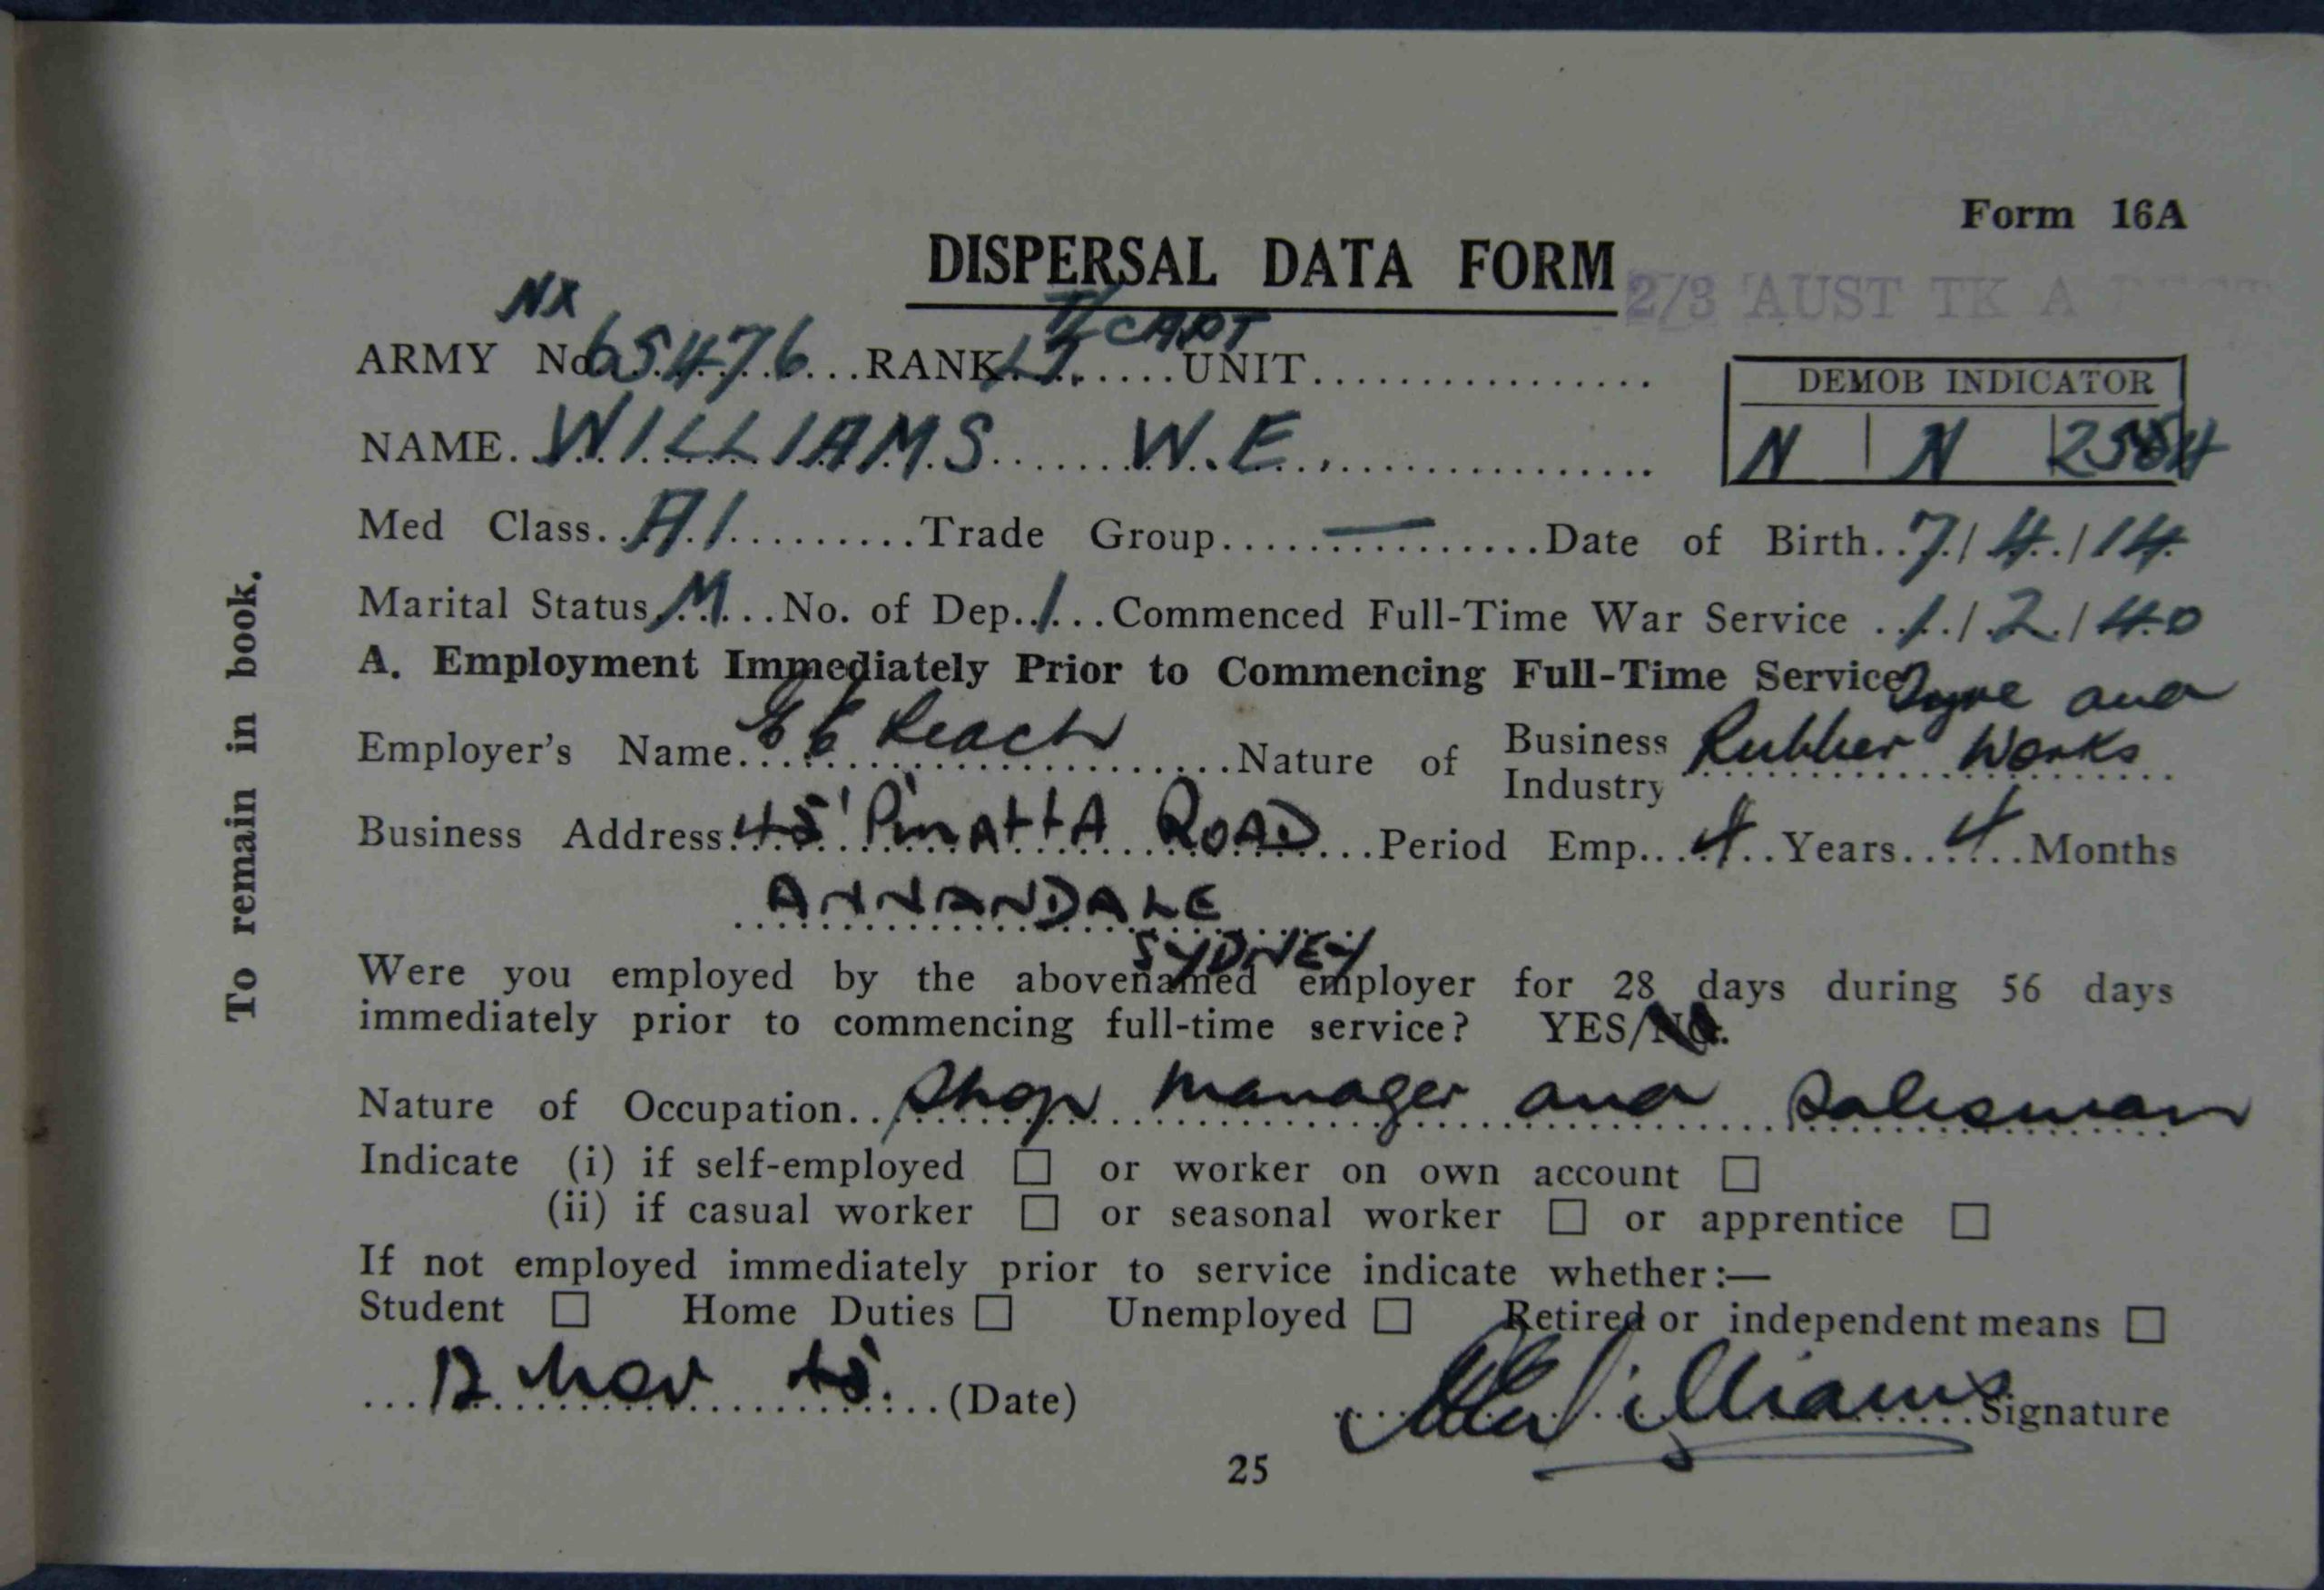 Form 16A
DISPERSAL DATA FORM
2/3 AUST TK A
NX T/ CAPT
ARMY No. 65476 RANK LT. UNIT
DEMOB INDICATOR
NAME. WILLIAMS W.E.
N | N |
Med Class. A1 Trade Group — Date of Birth 7/4/14
Marital Status M No. of Dep. 1 Commenced Full-Time War Service 1/2/40
A. Employment Immediately Prior to Commencing Full-Time Service
Tyre and
Employer's Name Leach Nature of Business Industry Rubber Works
Business Address 45 ROAD Period Emp. 4 Years 4 Months
ANNANDALE
SYDNEY
Were you employed by the abovenamed employer for 28 days during 56 days
immediately prior to commencing full-time service? YES/NO.
Nature of Occupation Shop Manager and Salesman
Indicate (i) if self-employed □ or worker on own account □
(ii) if casual worker □ or seasonal worker □ or apprentice □
If not employed immediately prior to service indicate whether:—
Student □ Home Duties □ Unemployed □ Retired or independent means □
12 Nov 45. (Date) Williams Signature
25
To remain in book.